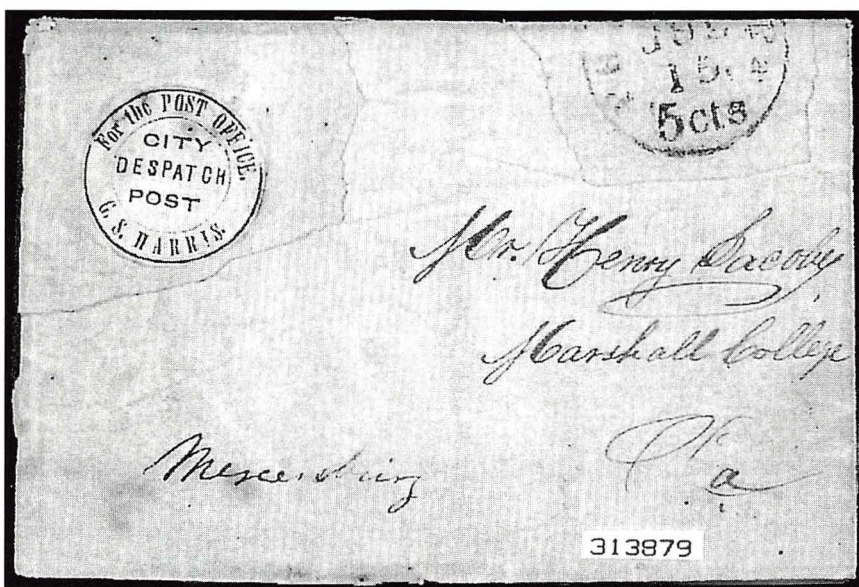 For the POST OFFICE.
CITY
DESPATCH
POST
G. S. HARRIS.
15
5cts
Mr. Henry Jacoby
Marshall College
Mercersburg
Pa
313879